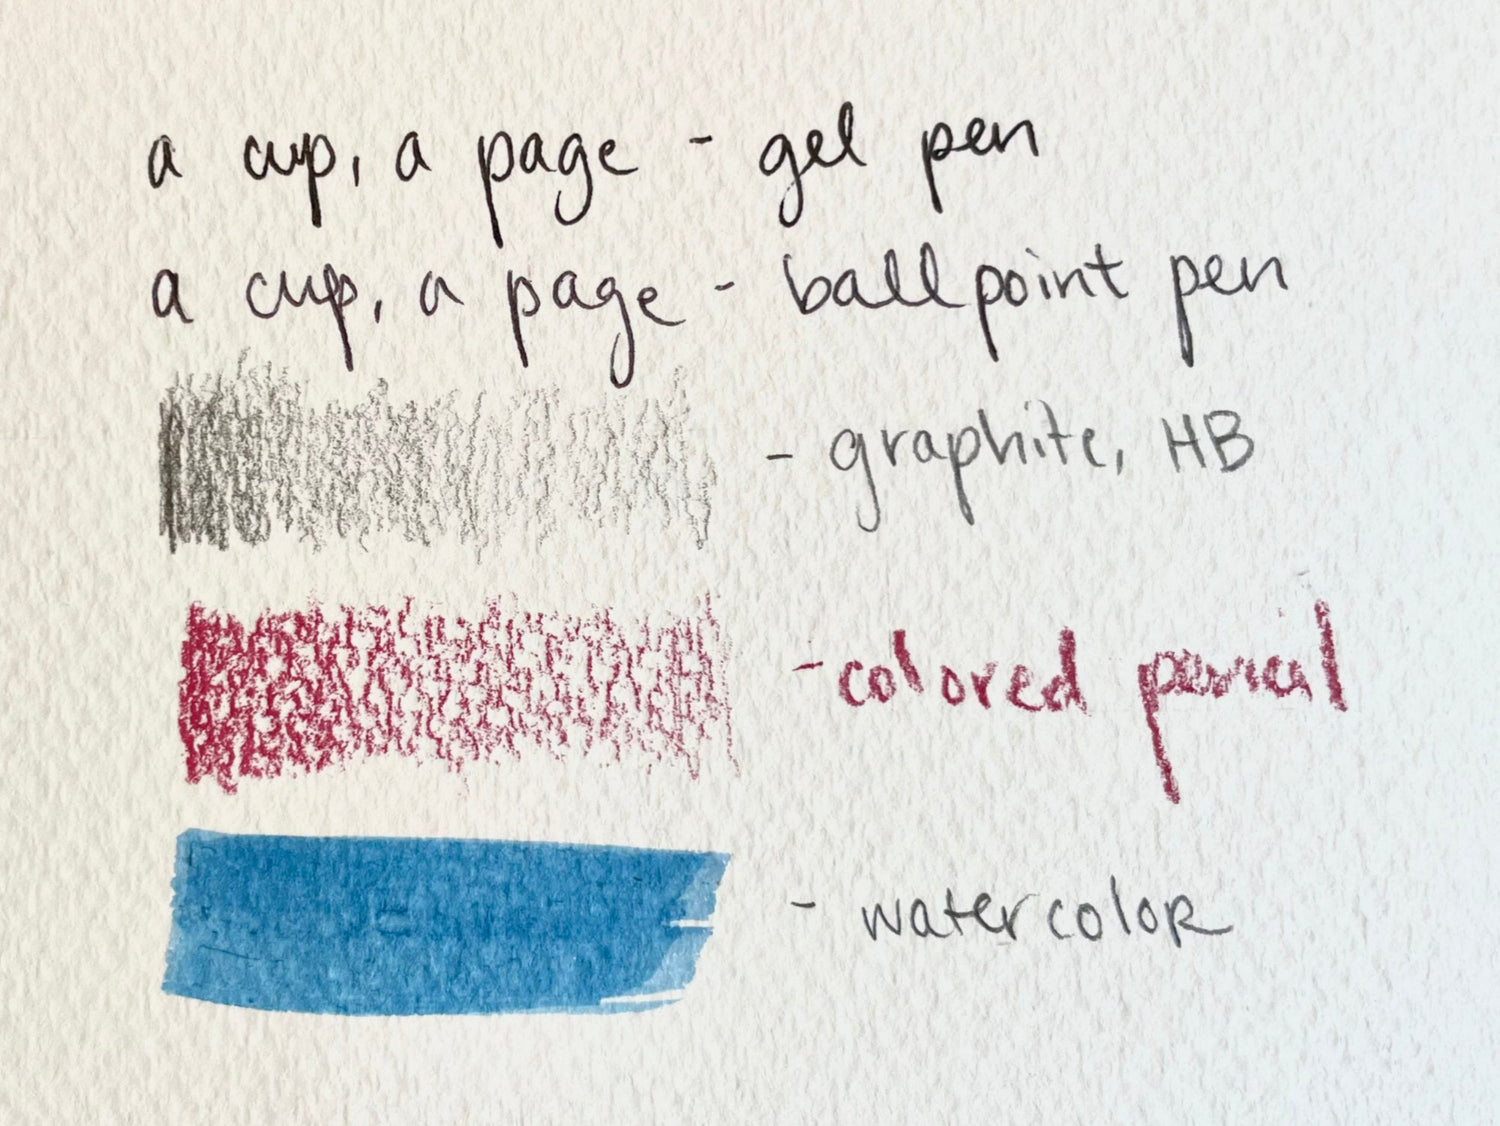 a cup, a page - gel pen
a cup, a page - ballpoint pen
- graphite, HB
- colored pencil
- watercolor